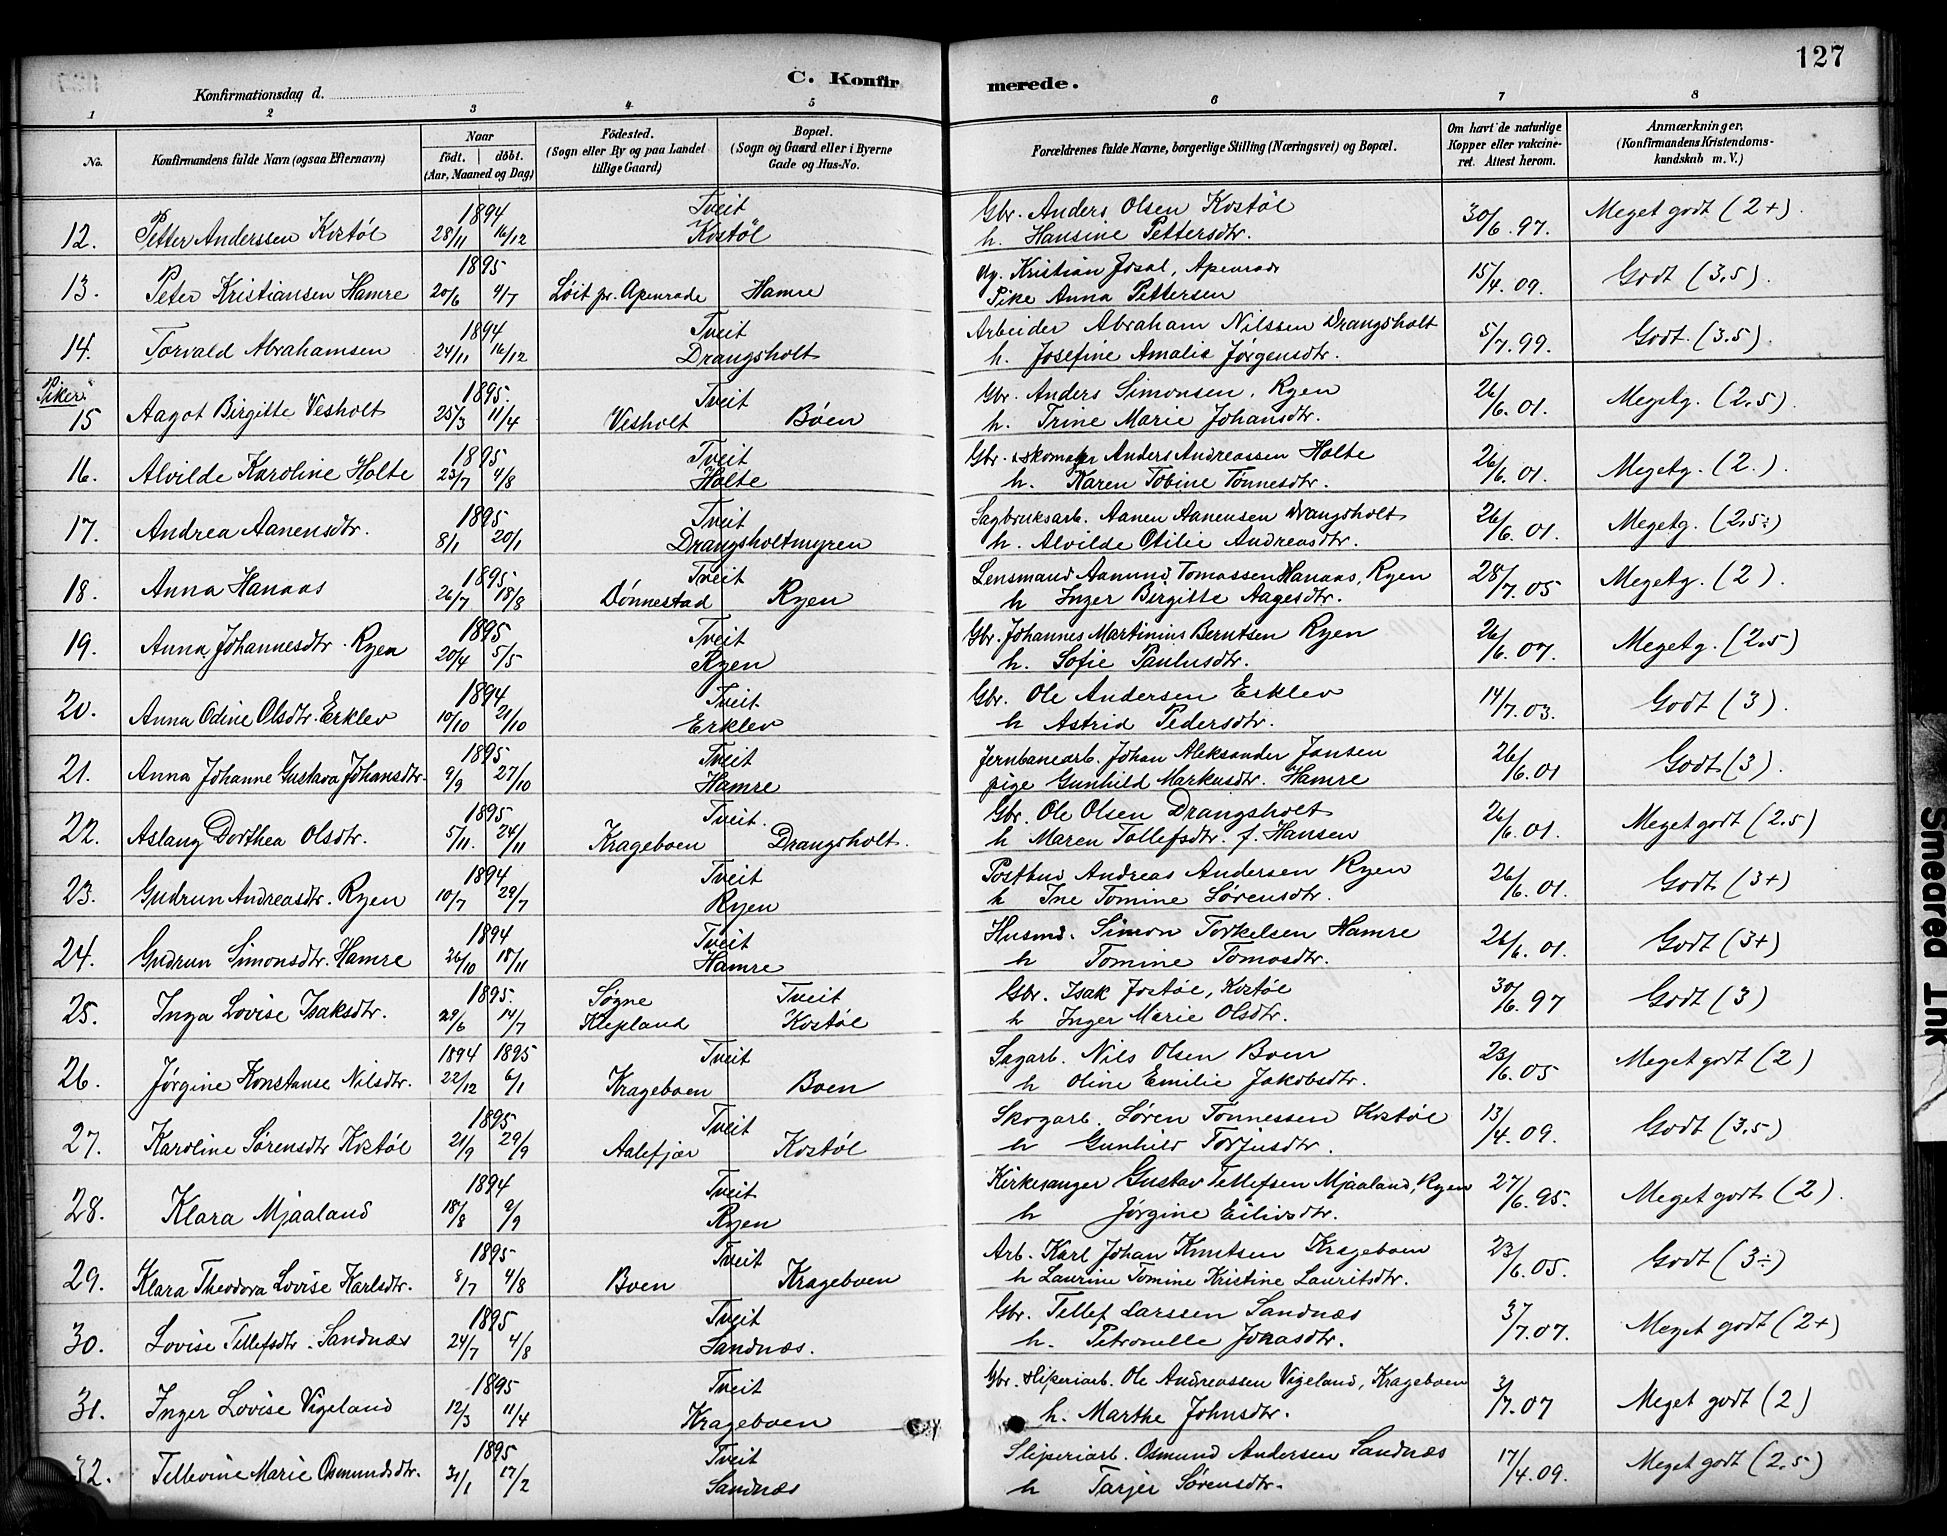 127
C. Konfirmerede.
Konfirmationsdag d.
1 2 3 4 5 6 7 8
No. Konfirmandens fulde Navn (ogsaa Efternavn) Naar født. døbt. (Aar, Maaned og Dag) Fødested. (Sogn eller By og paa Landet tillige Gaard) Bopæl. (Sogn og Gaard eller i Byerne Gade og Hus-No. Forældrenes fulde Navne, borgerlige Stilling (Næringsvei) og Bopæl. Om havt de naturlige Kopper eller vakcineret. Attest herom. Anmærkninger. (Konfirmandens Kristendomskundskab m. V.)
1894 Tveit Gbr. Anders Olsen Kostøl
12. Petter Anderssen Kostøl 28/11 16/12 Kostøl h. Hansine Pettersdtr. 30/6.97. Meget godt (2+).
1895 Kristian Josal, Apenrade
13. Peter Kristiansen Hamre 20/6 4/7 Løit pr. Apenrade Hamre Pike Anna Pettersen 15/4.09. Godt (3.5).
1894 Tveit Arbeider Abraham Nilssen Drangsholt
14. Torvald Abrahamsen 24/11 16/12 Drangsholt h. Josefine Amalie Jørgensdtr. 5/7.99. Godt. (3.5).
Piker
1895. Tveit Gbr. Anders Simonsen, Ryen
15 Aagot Birgitte Vesholt 25/3 11/4 Vesholt Boen h. Trine Marie Johansdtr. 26/6.01. Megetg. (2.5).
1895 Tveit Gbr. & skomager Anders Andreassen Holte
16. Alvilde Karoline Holte 23/7 4/8 Holte h. Karen Tobine Tønnesdtr. 26/6.01. Megetg. (2.).
1895 Tveit Sagbruksarb. Aanen Aanensen Drangsholt
17. Andrea Aanensdtr. 8/1 20/1 Drangsholtmyren h. Alvilde Otilie Andreasdtr. 26/6.01. Megetg. (2.5÷)
1895 Tveit Lensmand Aanund Tomassen Hanaas, Ryen
18. Anna Hanaas 26/7 18/8 Dønnestad Ryen h Inger Birgitte Aagesdtr. 28/7.05 Megetg. (2).
1895 Tveit Gbr. Johannes Martinius Berntsen Ryen
19. Anna Johannesdtr. Ryen 20/4 5/5 Ryen h. Sofie Paulusdtr. 26/6.07. Megetg. (2.5)
1894 Tveit Gbr. Ole Andersen Erklev
20. Anna Odine Olsdtr. Erklev 10/10 21/10 Erklev h Astrid Pedersdtr. 14/7.03. Godt (3).
1895 Tveit Jernbanearb. Johan Aleksander Jansen
21. Anna Johanne Gustava Johansdtr. 9/9 27/10 Hamre pige Gunhild Markusdtr. Hamre 26/6.01 Godt (3).
1895 Tveit. Gbr. Ole Olsen Drangsholt
22. Aslaug Dorthea Olsdtr. 5/11. 24/11 Krageboen Drangsholt. h Maren Tollefsdtr. f. Hansen 26/6.01. Meget godt (2.5)
1894 Tveit Postbud Andreas Andersen Ryen
23. Gudrun Andreasdtr. Ryen 10/7 29/7 Ryen h Ine Tomine Sørensdtr. 26/6.01. Godt (3+)
1894 Tveit Husmd. Simon Torkelsen Hamre
24. Gudrun Simonsdtr. Hamre 26/10 18/11 Hamre h Tomine Tomasdtr. 26/6.01. Godt (3+)
1895. Søgne Tveit Gbr. Isak Jostøl, Kostøl
25. Inga Lovise Isaksdtr. 29/6 14/7 Klepland Kostøl h Inger Marie Olsdtr. 30/6.97 Godt (3)
1894 1895 Tveit Sagarb. Nils Olsen Boen
26. Jørgine Konstanse Nilsdtr. 22/12 6/1 Krageboen Boen h Oline Emilie Jakobsdtr. 23/6.05 Meget godt (2)
1895 Tveit Skogarb. Søren Tønnessen Kostøl
27. Karoline Sørensdtr Kostøl 21/9 29/9 Aalefjær Kostøl h Gunhild Torjusdtr. 13/4.09. Godt (3.5)
1894 Tveit Kirkesanger Gustav Tellefsen Mjaaland, Ryen
28. Klara Mjaaland 18/8 9/9 Ryen h Jørgine Eilivsdtr. 27/6.95. Meget godt (2).
1895 Tveit Arb. Karl Johan Knutsen Krageboen
29. Klara Theodora Lovise Karlsdtr. 8/7 4/8 Boen Krageboen h Laurine Tomine Kristine Lauritsdtr. 23/6.05. Godt (3÷)
1895 Tveit Gbr. Tellef Larssen Sandnæs
30. Lovise Tellefsdtr. Sandnæs 24/7 4/8 Sandnæs. h. Petronelle Jonasdtr. 3/7.07. Meget godt (2+)
1895 Tveit Gbr. & sliperiarb. Ole Andreassen Vigeland, Krageboen
31. Inger Lovise Vigeland 12/3 11/4 Krageboen h. Marthe Johnsdtr. 3/7.07 Meget godt (2)
1895 Tveit Sliperiarb. Osmund Andersen Sandnæs
32. Tellevine Marie Osmundsdtr. 31/1 17/2 Sandnæs h Tarjer Sørensdtr. 17/4.09. Meget godt (2.5)
Smeared Ink